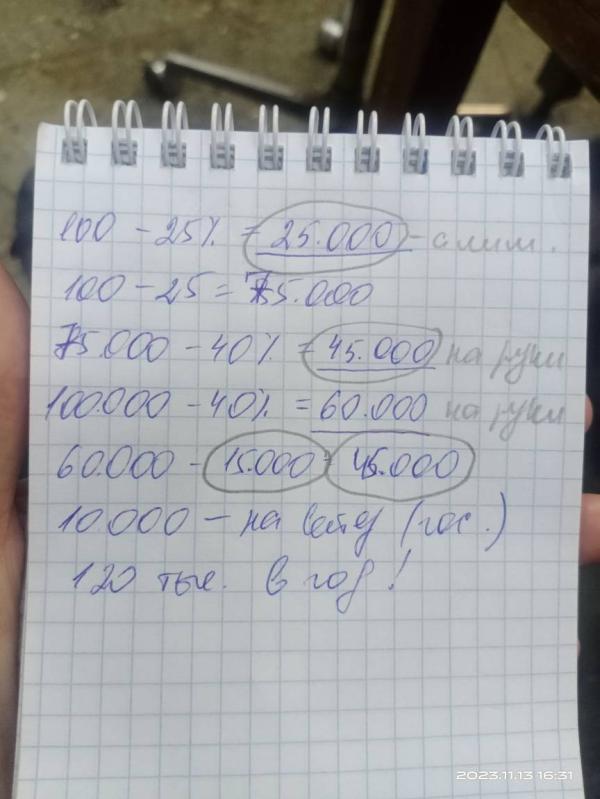 100 - 25% = 25.000 - алим.
100 - 25 = 75.000
75.000 - 40% = 45.000 на руки
100.000 - 40% = 60.000 на руки
60.000 - 15.000 = 45.000
10.000 - на ветер (гос.)
120 тыс. в год!
2023.11.13 16:31